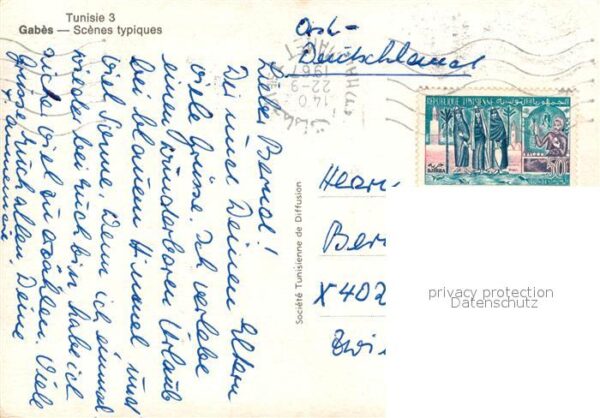 Tunisie 3
Gabès — Scènes typiques
Ost-
Deutschland
HOUMT
1967
22-9
14 0
REPUBLIQUE TUNISIENNE الجمهورية التونسية
DJERBA
50
Lieber Bernd!
Dir und Deinen Eltern
viele Grüsse. Ich verlebe
einen wunderbaren Urlaub
bei blauem Himmel und
viel Sonne. Wenn ich einmal
wieder bei Euch bin habe ich
viel zu erzählen. Viele
Grüsse Euch allen Deine
Société Tunisienne de Diffusion
Herrn
Ber
X 402
Zwi
privacy protection
Datenschutz